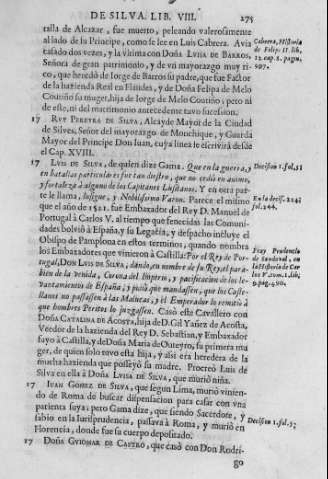 DE SILVA. LIB. VIII. 275
talla de Alcazar, fue muerto, peleando valerosamente
al lado de la Principe, como se lee en Luis Cabrera. Avia
casado dos vezes, y la vltima con Doña LUISA DE BARROS,
Señora de gran patrimonio, y de vn mayorazgo muy ri-
co, que heredò de Iorge de Barros su padre, que fue Factor
de la hazienda Real en Flandes, y de Doña Felipa de Melo
Coutiño su muger, hija de Iorge de Melo Coutiño; pero ni
de este, ni del matrimonio antecedente tavo sucession.
Cabrera, Historia
de Felip. II. lib.
12. cap. 8. pagin.
907.
17 RUY PEREYRA DE SILVA, Alcayde Mayor de la Ciudad
de Silves, Señor del mayorazgo de Monchique, y Guarda
Mayor del Principe Don Iuan, cuya linea se escrivirà desde
el Cap. XVIII.
17 LUIS DE SILVA, de quien dize Gama. Que en la guerra, y
en batallas particulares fue tan diestro, que no cediò en animo,
y fortaleza à alguno de los Capitanes Lusitanos. Y en otra par-
te le llama, Insigne, y Nobilissimo Varon. Parece el mismo
que el año de 1521. fue Embaxador del Rey D. Manuel de
Portugal à Carlos V. al tiempo que fenecidas las Comuni-
dades bolviò à España, y su Legacia, y despacho incluye el
Obispo de Pamplona en estos terminos, quando nombra
los Embaxadores que vinieron à Castilla: Por el Rey de Por-
tugal, DON LUIS DE SILVA, dando en nombre de su Rey el para-
bien de la venida, Corona del Imperio, y pacificacion de los le-
vantamientos de España; y pidiò que mandassen, que los Caste-
llanos no passassen à las Malucas, y el Emperador lo remitiò à
que hombres Peritos lo juzgassen. Casò este Cavallero con
DOÑA CATALINA DE ACOSTA, hija de D. Gil Yañez de Acosta,
Veedor de la hazienda del Rey D. Sebastian, y Embaxador
suyo à Castilla, y de Doña Maria de Outeyro, su primera mu-
ger, de quien solo tuvo esta hija, y assi era heredera de la
mucha hazienda que posseyò su madre. Procreò Luis de
Silva en ella à Doña LUISA DE SILVA, que muriò niña.
Decision 1. fol. 51
En la decis. 224.
fol. 244.
Fray Prudencio
de Sandoval, en
la Historia de Car
los V. tom. 1. lib.
9. pag. 490.
17 IUAN GOMEZ DE SILVA, que segun Lima, muriò vinien-
do de Roma de buscar dispensacion para casar con vna
parienta suya; pero Gama dize, que siendo Sacerdote, y
sabio en la Iurisprudencia, passava à Roma, y muriò en
Florencia, donde fue su cuerpo depositado.
Decision 1. fol. 5;
17 DOÑA GUIOMAR DE CASTRO, que casò con Don Rodri-
go